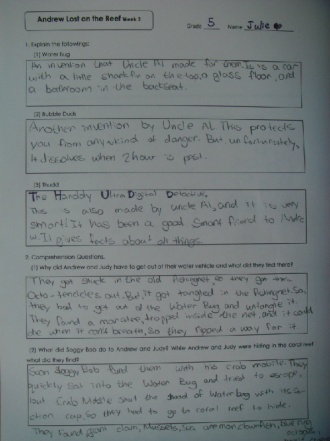 Andrew Lost on the Reef Week 3
Grade 5 Name Julie
1. Explain the followings:
(1) Water bug
An invention that Uncle Al made for them. Is is a car
with a little shark fin on the top, a glass floor, and
a bathroom in the backseat.
(2) Bubble Duck
Another invention by Uncle Al. This protects
you from any kind of danger. But unfortunately,
it dissolves when 2 hour is past.
(3) Thudd
The Handy Ultra Digital Detective
This is also made by uncle Al, and it is very
smart. It has been a good smart friend to Andre
w. It gives facts about all things.
2. Comprehension Questions.
(1) Why did Andrew and Judy have to get out of their water vehicle and what did they find there?
They got stuck in the old fishing net, so they got
Octo-tencicles out. But, it got tangled in the fishing net. So,
they had to get out of the Water Bug and untangle it.
They found a manatee, trapped inside the net, and it could
be when it can't breath, so they ripped a way for it.
(2) What did Soggy Bob do to Andrew and Judy? While Andrew and Judy were hiding in the coral reef
what did they find?
Soon Soggy Bob found them with his crab mobile. They
quickly got into the Water Bug and tried to escape
but Crab Mobile shut the of Water bug with its
tion cap, so they had to go to coral reef to hide.
They found giant clam, Mussels, sea anemone, clownfish,